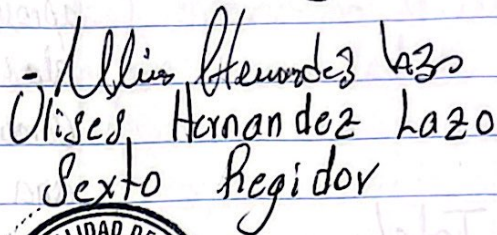 Ulises Hernandez Lazo
Ulises Hernandez Lazo
Sexto Regidor
ALIDAD DE